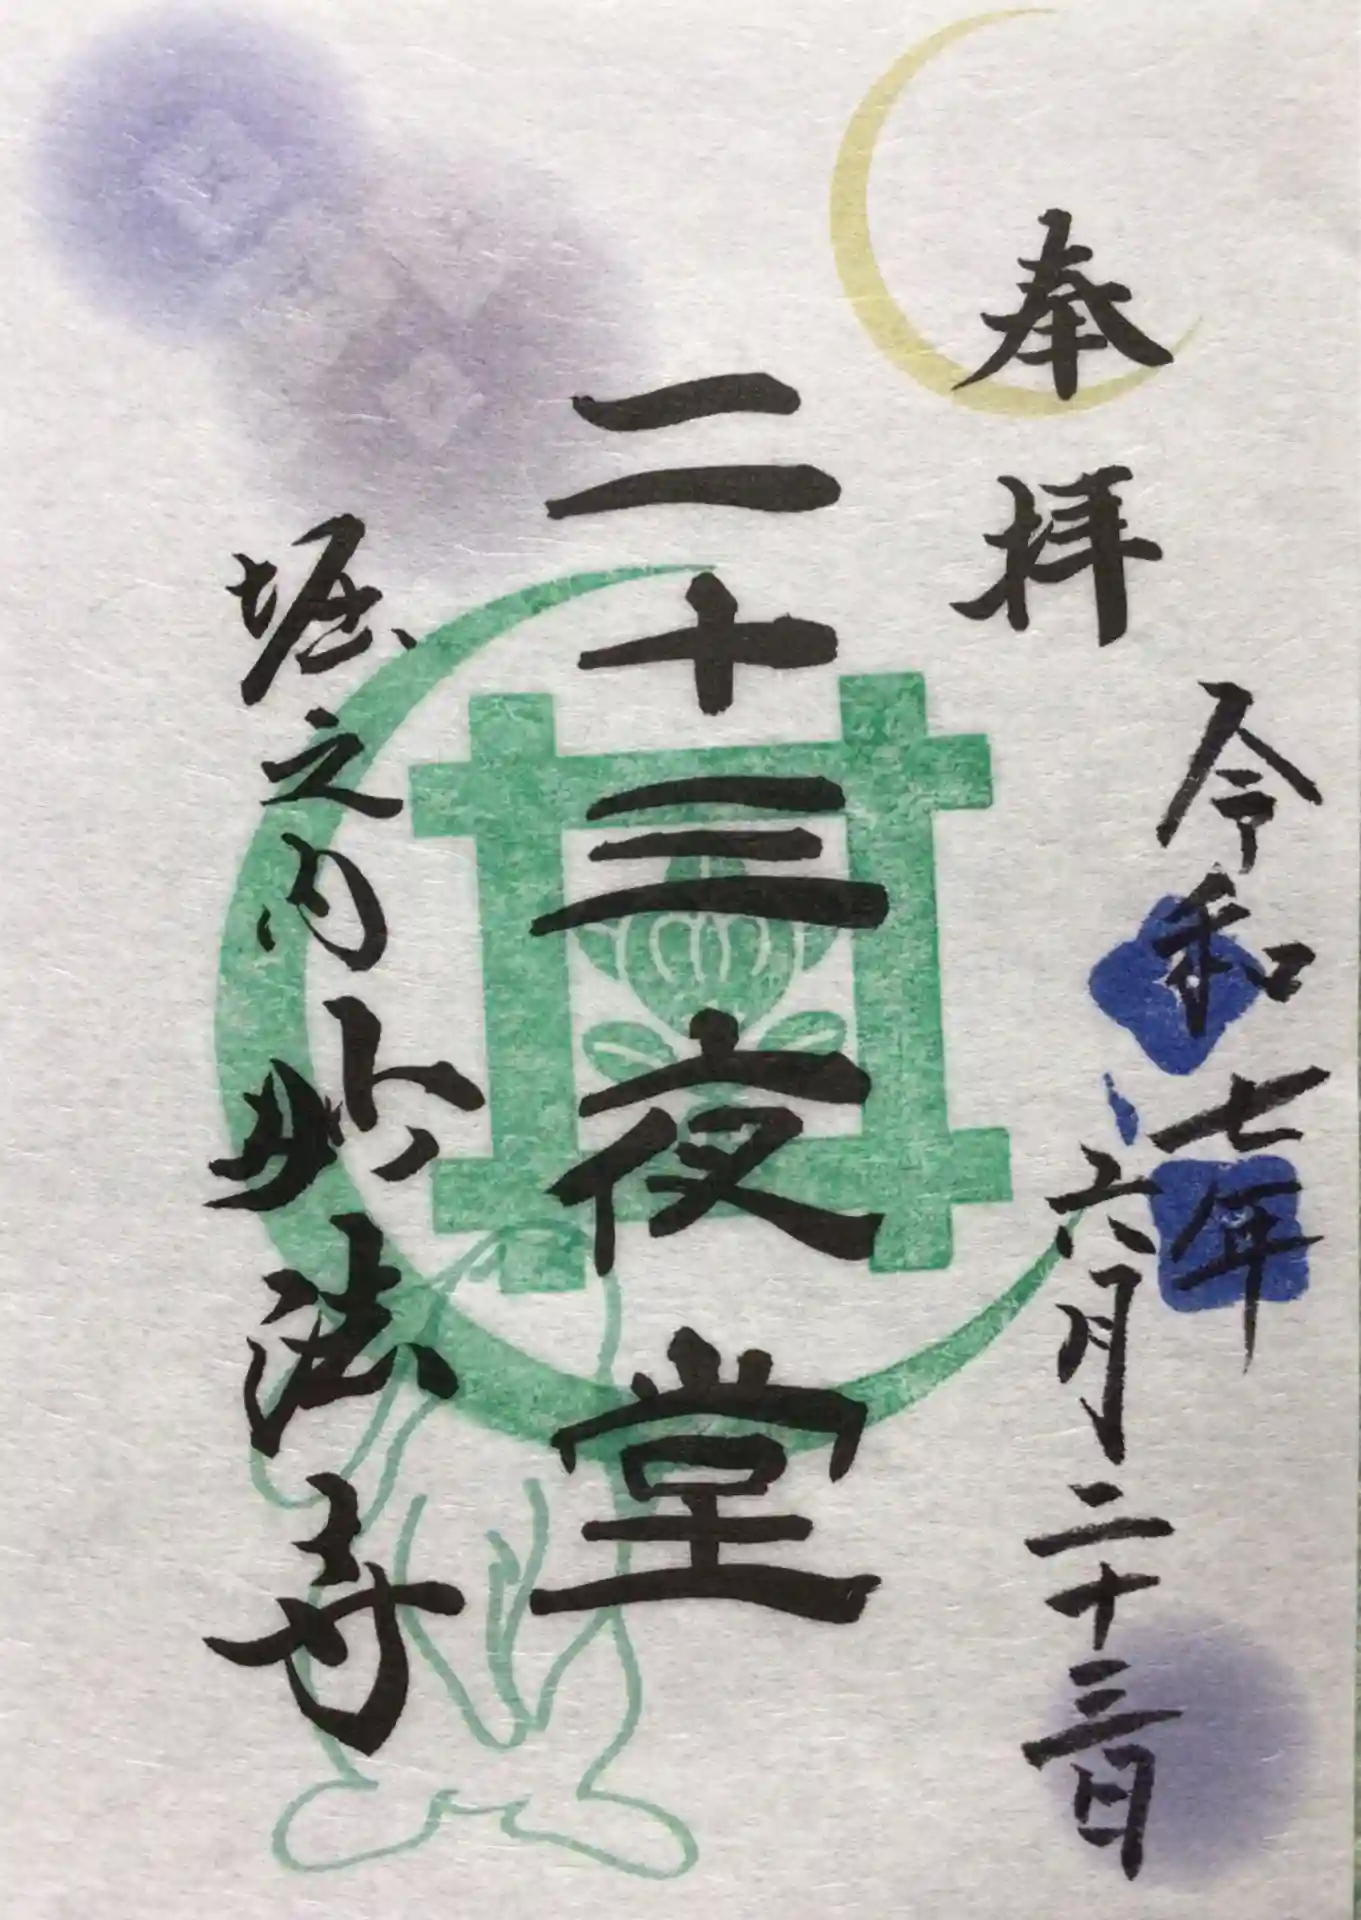 奉拝
令和七年
六月二十三日
二十三夜堂
堀之内妙法寺